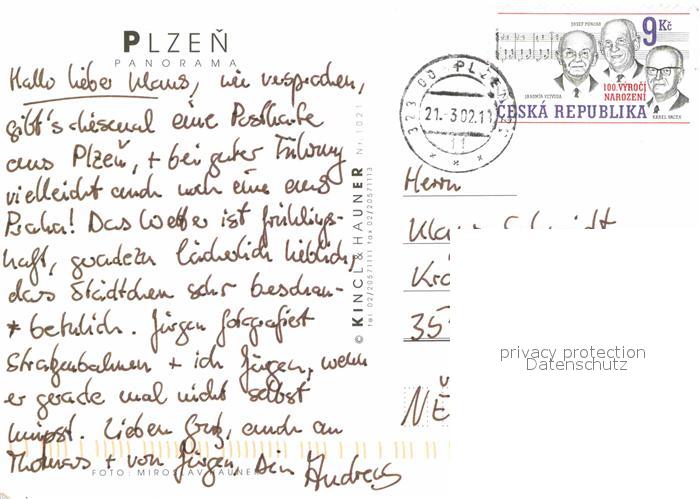 PLZEŇ
PANORAMA
Hallo lieber Klaus, wie versprochen,
gibt's diesmal eine Postkarte
aus Plzeň, + bei guter Führung
vielleicht auch noch eine aus
Praha! Das Wetter ist frühlings-
haft, geradezu lächerlich lieblich,
das Städtchen sehr beschau-
+ betulich. Jürgen fotografiert
Straßenbahnen + ich Jürgen, wenn
er gerade mal nicht selbst
knipst. Lieben Gruß, auch an
Thomas + von Jürgen, Dein Andreas
FOTO: MIROSLAV HAUNER
© KINCL & HAUNER Nr. 1021
tel. 02/20571111 fax 02/20571113
323 00 PLZEŇ
21.-3.02.-1
11
JOSEF PONCAR
JAROMÍR VEJVODA
KAREL VACEK
9 Kč
100. VÝROČÍ
NAROZENÍ
ČESKÁ REPUBLIKA
Herrn
Klaus Schmidt
35
privacy protection
Datenschutz